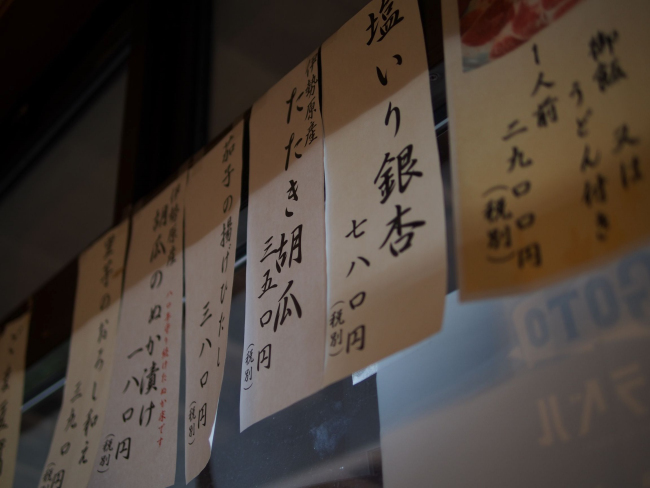 御飯 又は
うどん付き
一人前
二九〇〇円
(税別)
塩いり銀杏
七八〇円
(税別)
伊勢原産
たたき胡瓜
三五〇円
(税別)
茄子の揚げびたし
三八〇円
(税別)
伊勢原産
胡瓜のぬか漬け
一八〇円
のおろし和え
三九〇円
GOTO
ラベル